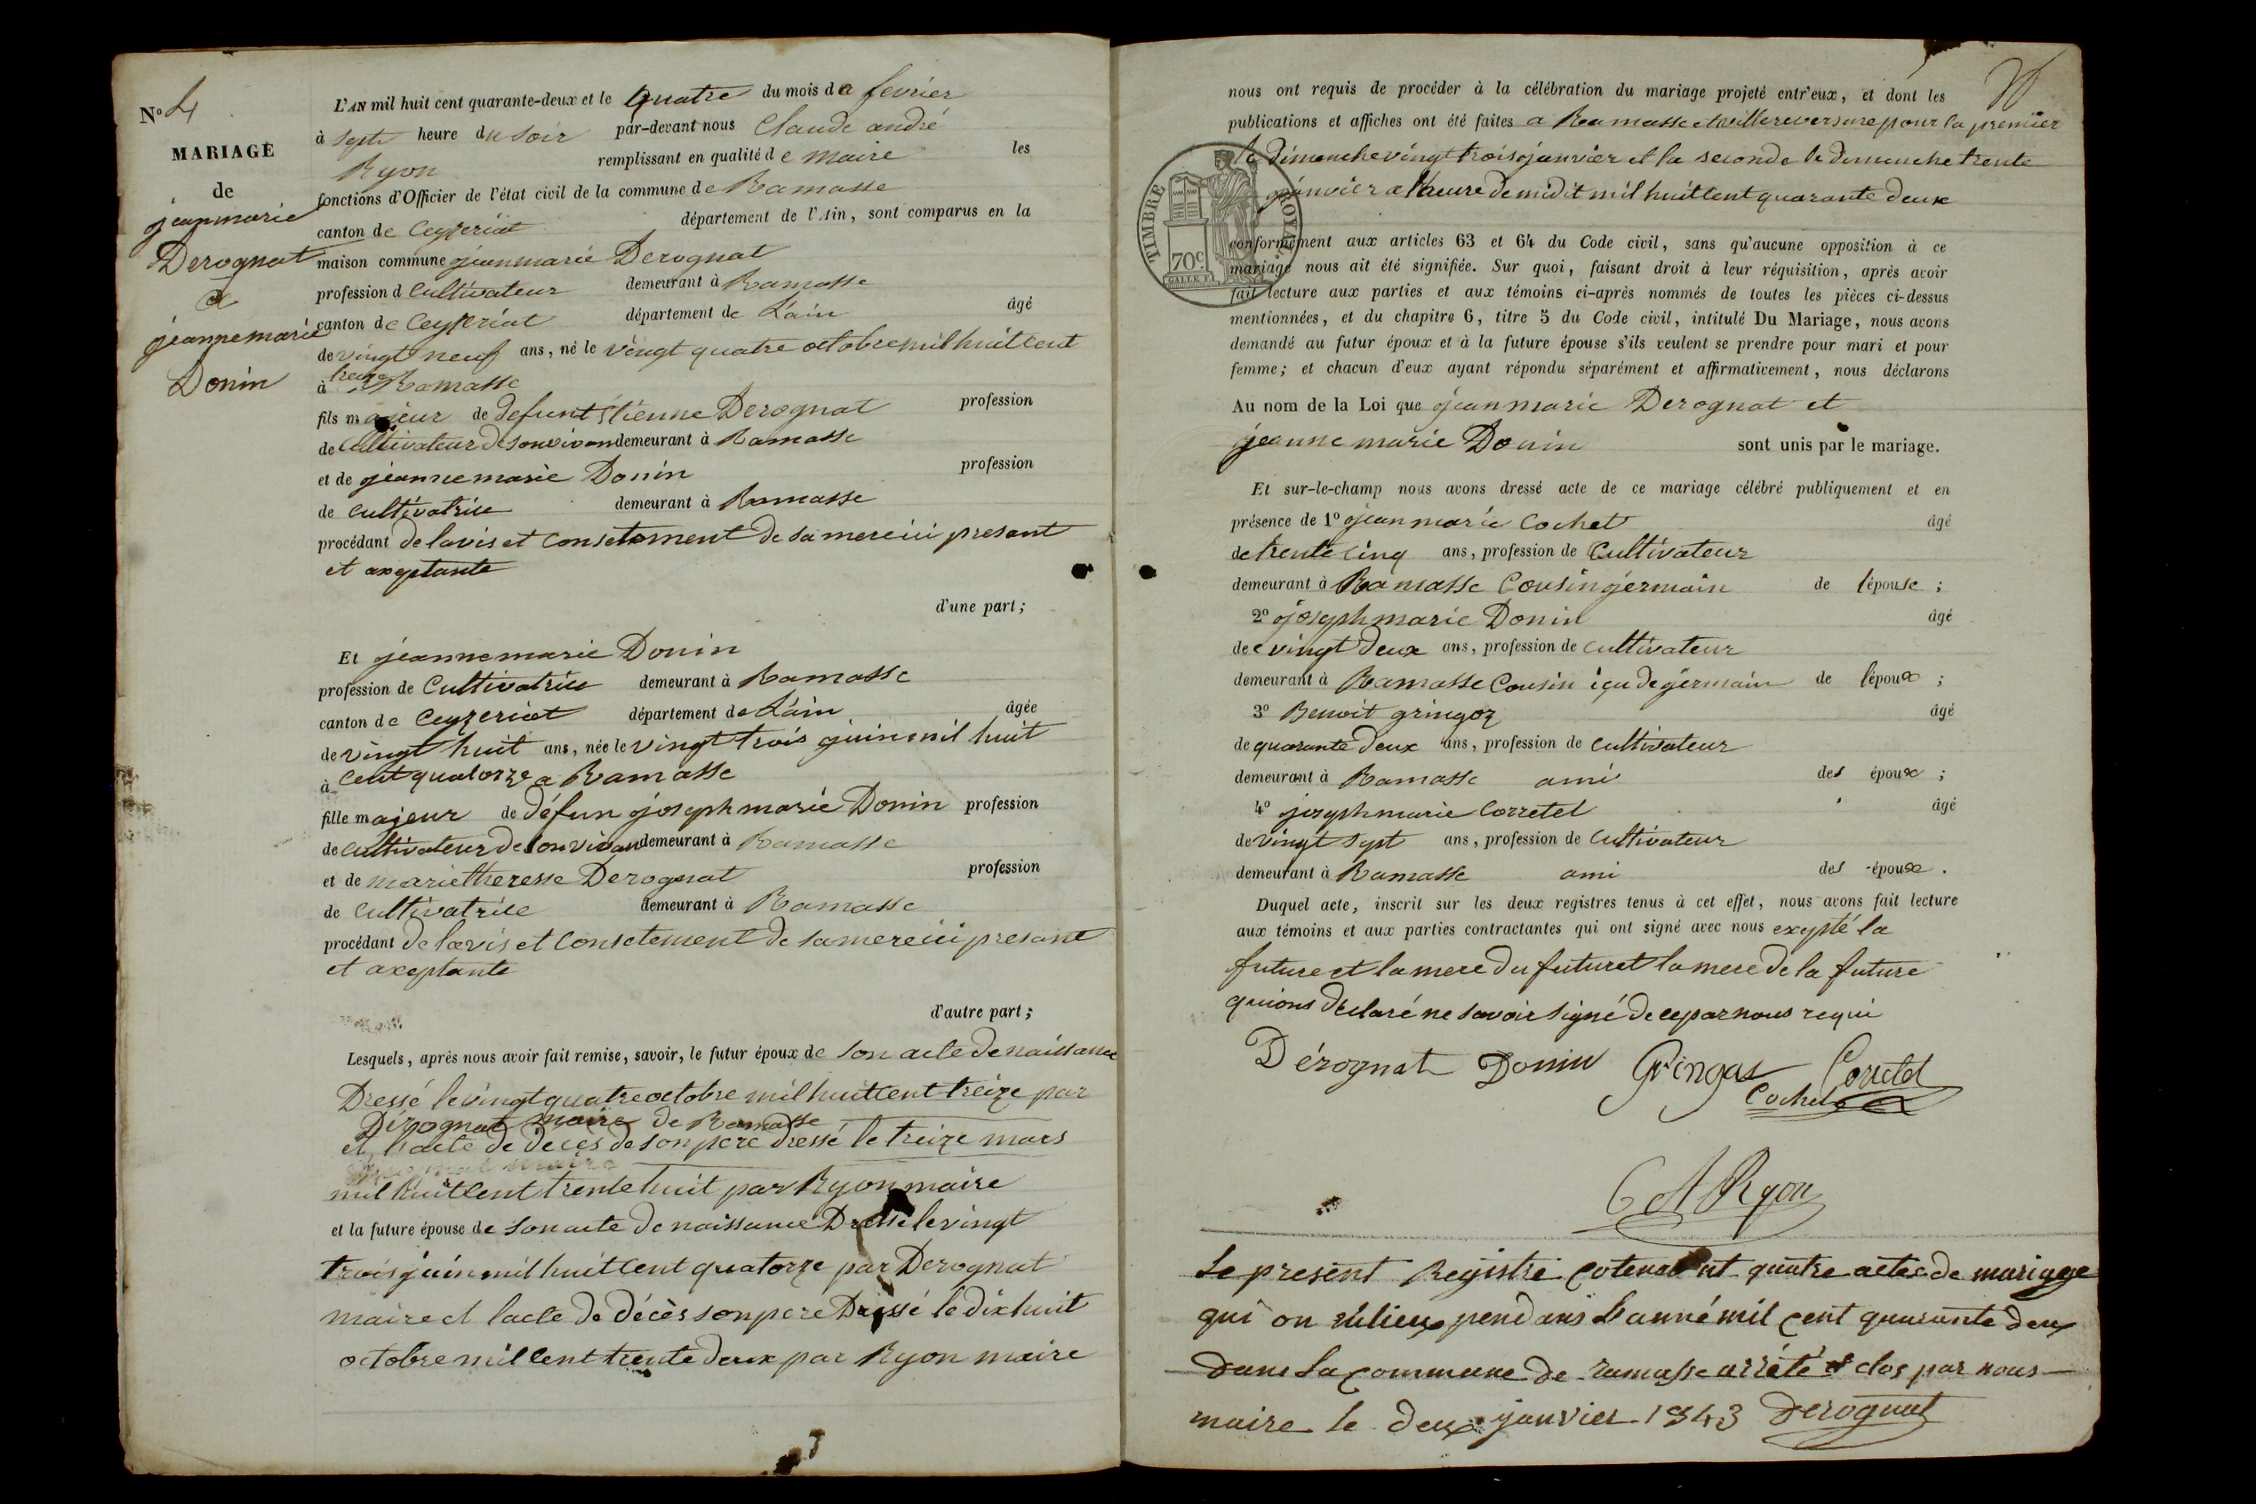 N° 4
MARIAGE
de
jeanmarie
Derognat
et
jeannemarie
Donin
L'AN mil huit cent quarante-deux et le quatre du mois de fevrier
à septe heure du soir par-devant nous Claude andré
Ryon remplissant en qualité de maire les
fonctions d'Officier de l'état civil de la commune de Ramasse
canton de Ceyzeriat département de l'Ain, sont comparus en la
maison commune jeanmarie Derognat
profession d Cultivateur demeurant à Ramasse
canton de Ceyzeriat département de L'ain âgé
de vingt neuf ans, né le vingt quatre octobre mil huit cent
treize
à Ramasse
fils majeur de defunt Etienne Derognat profession
de Cultivateur de son vivan demeurant à Ramasse
et de jeannemarie Donin profession
de cultivatrice demeurant à Ramasse
procédant de lavis et consetement de sa mere ici presant
et axeptante
d'une part;
Et jeannemarie Donin
profession de Cultivatrice demeurant à Ramasse
canton de Ceyzeriat département de L'ain âgée
de vingt huit ans, née le vingt trois juin mil huit
à cent quatorze a Ramasse
fille majeur de défun joseph marie Donin profession
de cultivateur de son vivan demeurant à Ramasse
et de marietheresse Derognat profession
de cultivatrice demeurant à Ramasse
procédant de lavis et consetement de sa mere ici presant
et axeptante
d'autre part;
Lesquels, après nous avoir fait remise, savoir, le futur époux de son acte de naissance
Dressé le vingt quatre octobre mil huit cent treize par
Dérognat maire de Ramasse
et l'acte de deces de son pere dressé le treize mars
mil huit cent trente huit par Ryon maire
et la future épouse de son acte de naissance Dressé le vingt
trois juin mil huit cent quatorze par Derognat
maire et lacte de décès son pere Dressé le dix huit
octobre mil cent trente deux par Ryon maire
nous ont requis de procéder à la célébration du mariage projeté entr'eux, et dont les
publications et affiches ont été faites a Ramasse et villereversure pour la premier
le dimanche vingt trois janvier et la seconde le dimanche trente
janvier a l'heure de midit mil huit cent quarante deux
TIMBRE ROYAL
70c
conformément aux articles 63 et 64 du Code civil, sans qu'aucune opposition à ce
mariage nous ait été signifiée. Sur quoi, faisant droit à leur réquisition, après avoir
fait lecture aux parties et aux témoins ci-après nommés de toutes les pièces ci-dessus
mentionnées, et du chapitre 6, titre 5 du Code civil, intitulé Du Mariage, nous avons
demandé au futur époux et à la future épouse s'ils veulent se prendre pour mari et pour
femme; et chacun d'eux ayant répondu séparément et affirmativement, nous déclarons
Au nom de la Loi que jeanmarie Derognat et
jeanne marie Donin sont unis par le mariage.
Et sur-le-champ nous avons dressé acte de ce mariage célébré publiquement et en
présence de 1° jean marie Cochet âgé
de trente cinq ans, profession de Cultivateur
demeurant à Ramasse Cousin germain de lépouse;
2° joseph marie Donin âgé
de vingt deux ans, profession de cultivateur
demeurant à Ramasse Cousin içu de germain de lépoux;
3° Benoit gringoz âgé
de quarante deux ans, profession de cultivateur
demeurant à Ramasse ami des époux;
4° joseph marie Corretel âgé
de vingt sept ans, profession de cultivateur
demeurant à Ramasse ami des époux.
Duquel acte, inscrit sur les deux registres tenus à cet effet, nous avons fait lecture
aux témoins et aux parties contractantes qui ont signé avec nous exepté la
future et la mere du futur et la mere de la future
qui ons déclaré ne savoir signé de ce par nous requi
Dérognat Donin Gringas Corretel
Cochet
C A Ryon
Le present Registre cotenant quatre actes de mariage
qui on eut lieux pendans L'anné mil cent quarante deux
dans la commune de ramasse arrêté et clos par nous
maire le deux janvier 1843 Derognat